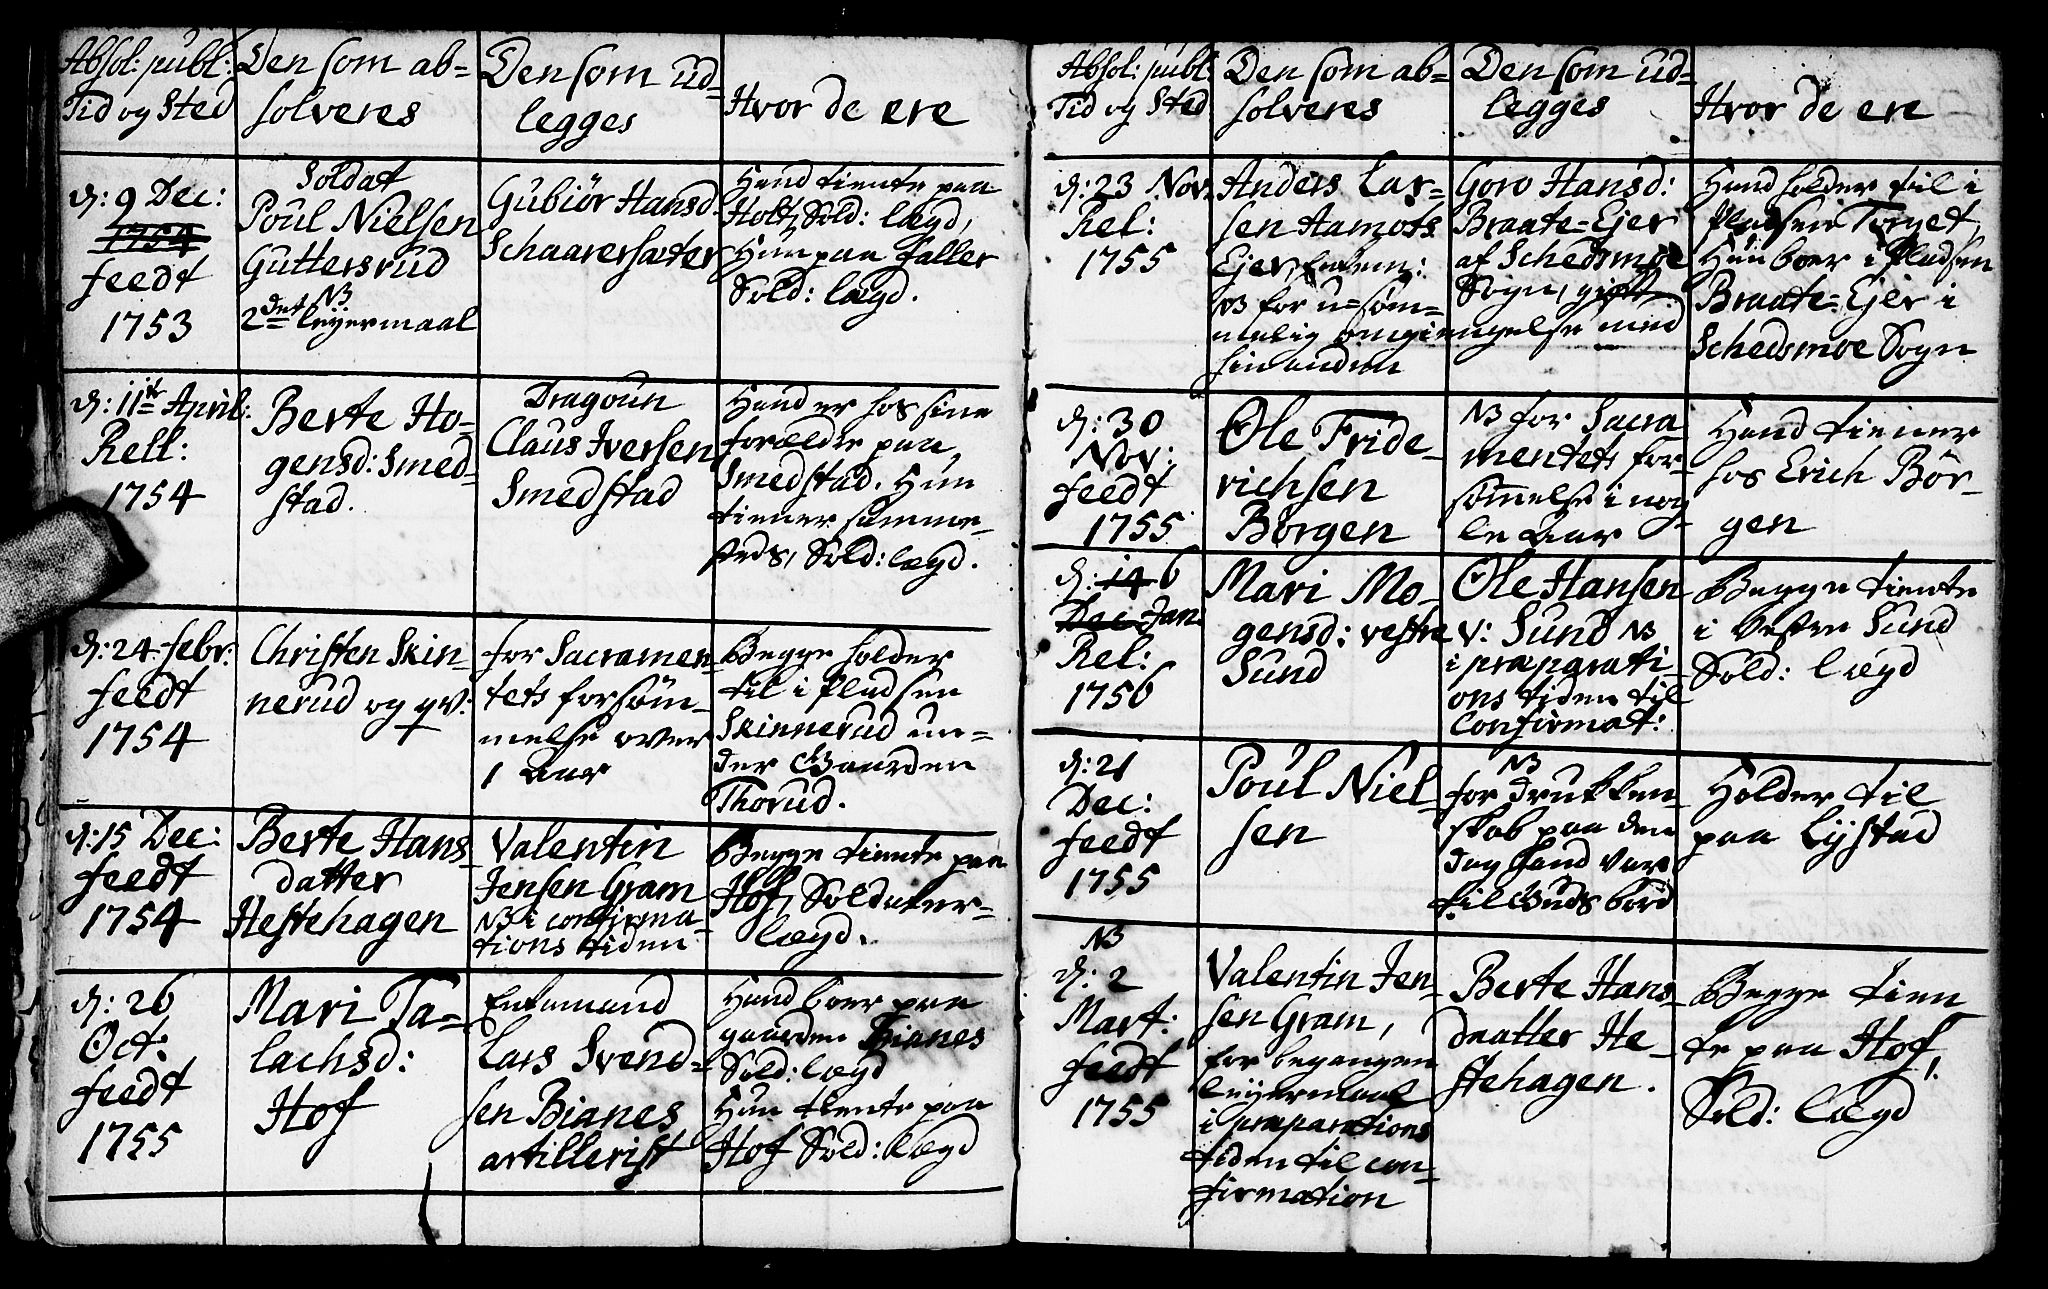 Absol: publ:
Tid og Sted
Den som ab=
solveres
Den som ud=
legges
Hvor de ere
d: 9 Dec:
1754
feedt
1753
Soldat
Poul Nielsen
Guttersrud
NB
2det leyermaal
Gubiör Hansd:
Schaarersæter
Hand tiente paa
Holt, Sold: lægd,
Hun paa Faller
Sold: lægd.
d: 11te April:
Rell:
1754
Berte Ho-
gensd: Smed-
stad.
Dragoun
Claus Iversen
Smedstad
Hand er hos sine
forældre paa
Smedstad. Hun
tiener samme-
steds, Sold: lægd.
d: 24 febr:
feedt
1754
Christen Skin-
nerud og qv:
for Sacramen-
tets forsøm-
melse over
1 Aar
Begge holder
til i Pladsen
Skinnerud un=
der Gaarden
Thorud.
d: 15 Dec:
feedt
1754
Berte Hans-
datter
Hestehagen
Valentin
Jensen Gram
NB i confirma-
tions tiden
Begge tiente paa
Hof, Soldater-
lægd.
d: 26
Oct:
feedt
1755
Mari Ta-
lachsd:
Hof
Enkemand
Lars Svend-
sen Bianes
artillerist
Hand boer paa
gaarden Bianes
Sold: lægd
Hun tiente paa
Hof Sold: lægd
Absol: publ:
Tid og Sted
Den som ab=
solveres
Den som ud=
legges
Hvor de ere
d: 23 Nov.
Rel:
1755
Anders Lar-
sen Aamots
Ejer, Enkem:
NB for u=søm-
melig omgiengelse med
hinanden
Goro Hansd:
Braate=Ejer
af Schedsmoe
Sogn, gift
Hand holder til i
Pladsen Torget,
Hun boer i Pladsen
Braate=Ejer i
Schedsmoe Sogn
d: 30
Nov:
feedt
1755
Ole Fride-
richsen
Børgen
NB for Sacra-
mentets for-
sømmelse i nog-
le Aar
Hand tiener
hos Erich Bør-
gen
d: 14 6
Dec Jan.
Rel:
1756
Mari Mo-
gensd: vestre
Sund
Ole Hansen
v: Sund NB
i præparati-
ons tiden til
Confirmat:
Begge tiente
i Vestre Sund
Sold: lægd
d: 21
Dec:
feedt
1755
Poul Niel-
sen
NB
for drukken-
skab paa den
dag hand var
til Guds bord
Holder til
paa Lystad
NB
d: 2
Mart:
feedt
1755
Valentin Jen-
sen Gram,
for begangen
leyermaal
i præparations
tiden til con-
firmation
Berte Hans-
daatter He-
stehagen.
Begge tien
te paa Hof,
Sold: lægd